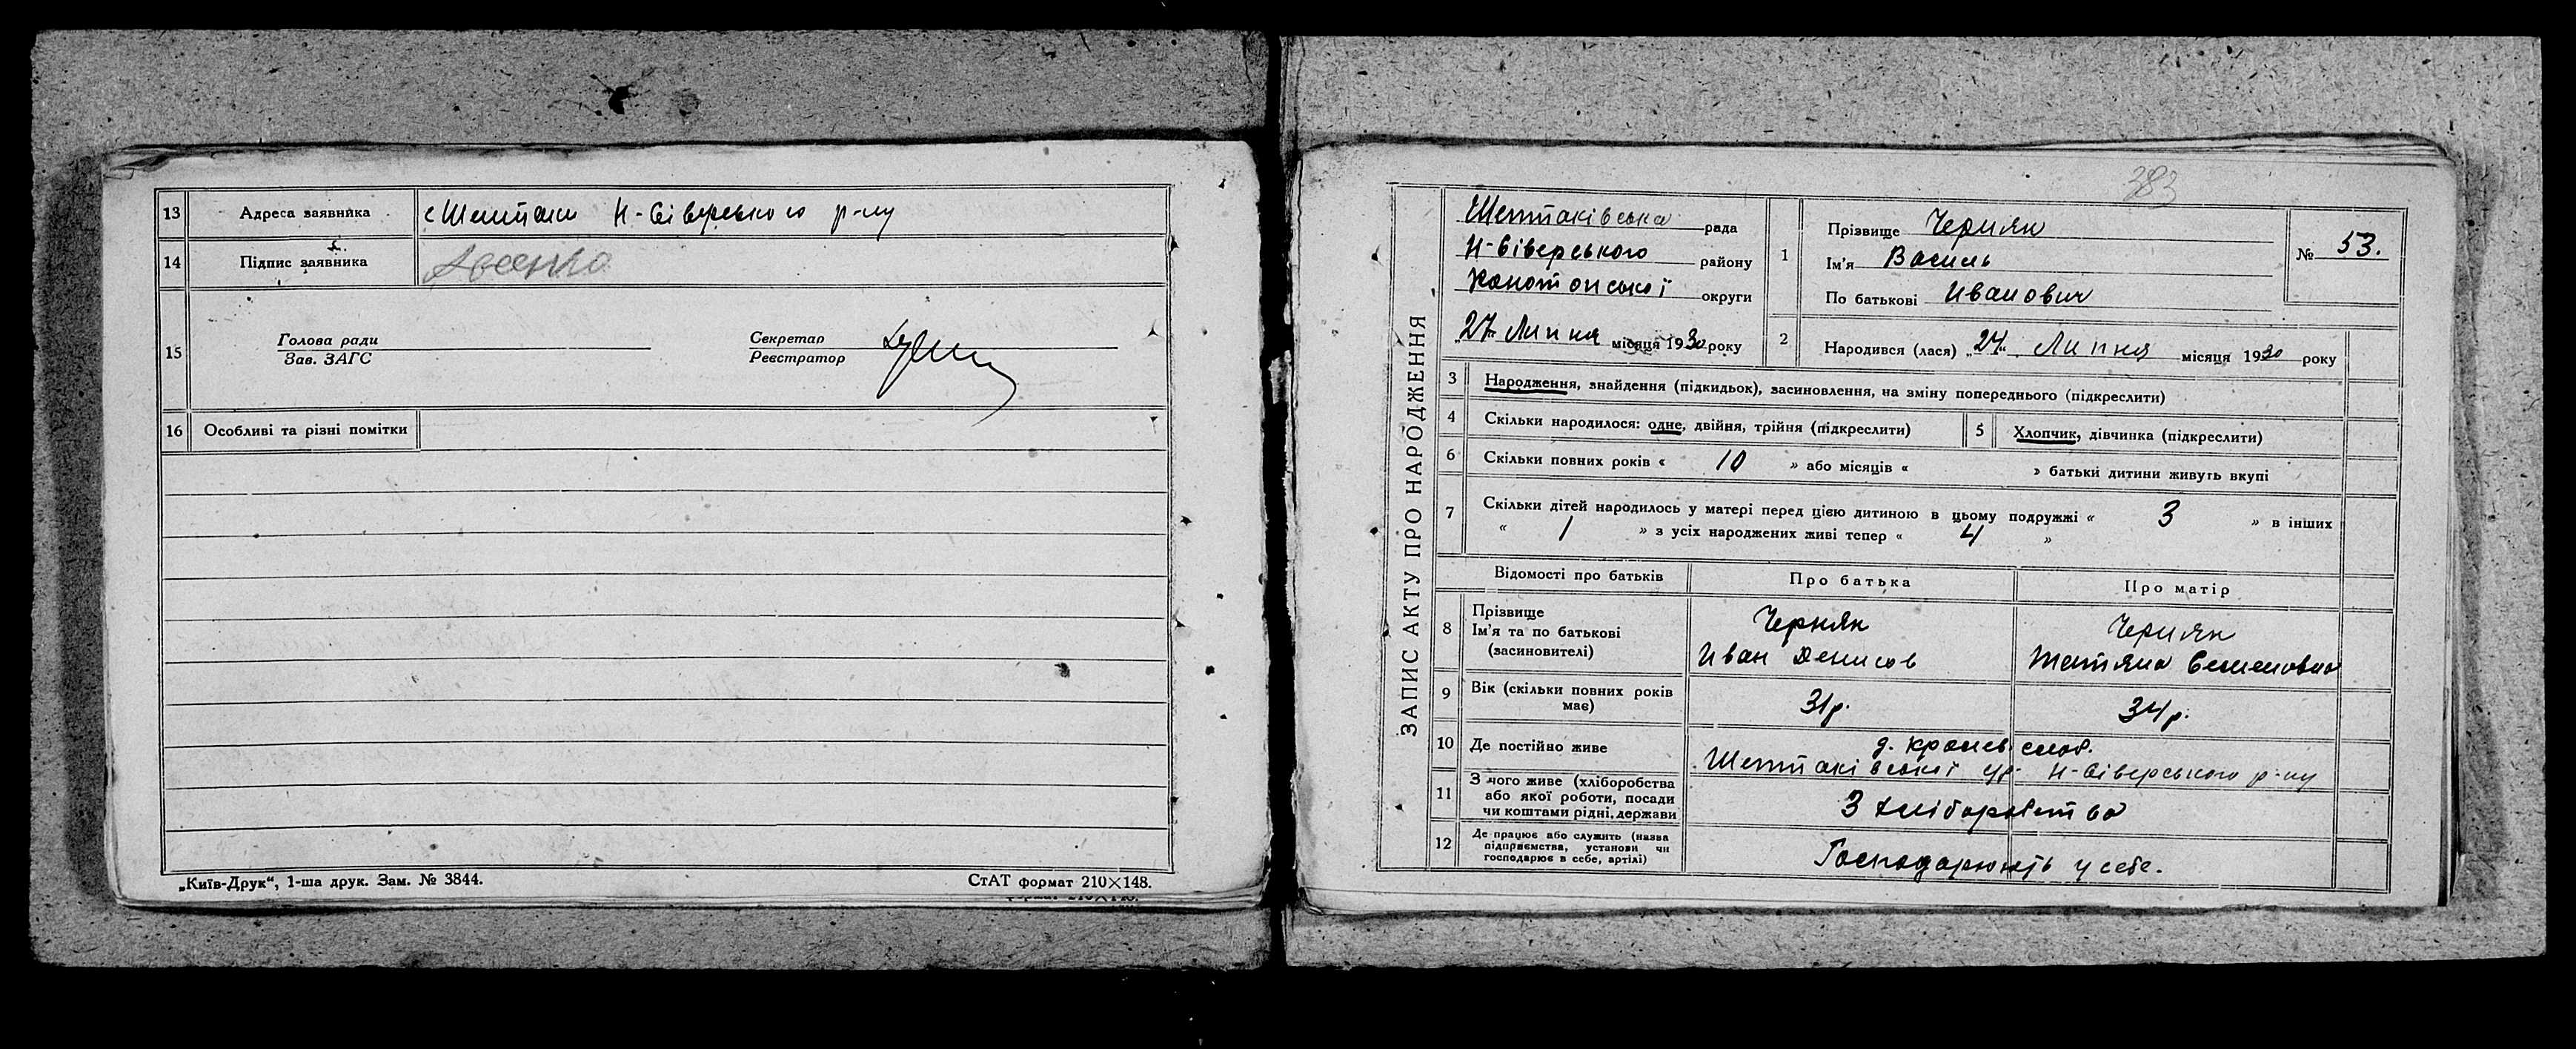 13 Адреса заявника с Шептаки Н-Сіверського р-ну
14 Підпис заявника
15 Голова ради
Зав. ЗАГС
Секретар
Реєстратор
16 Особливі та різні помітки
„Київ-Друк“, 1-ша друк. Зам. № 3844.
СтАТ формат 210×148.
383
ЗАПИС АКТУ ПРО НАРОДЖЕННЯ
Шептаківська рада
Н-Сіверського району
Конотопської округи
„27“ Липня місяця 1930 року
1 Прізвище Черняк
Ім'я Василь
По батькові Иванович
№ 53.
2 Народився (лася) „24“ Липня місяця 1930 року
3 Народження, знайдення (підкидьок), засиновлення, на зміну попереднього (підкреслити)
4 Скільки народилося: одне, двійня, трійня (підкреслити)
5 Хлопчик, дівчинка (підкреслити)
6 Скільки повних років « 10 » або місяців « » батьки дитини живуть вкупі
7 Скільки дітей народилось у матері перед цією дитиною в цьому подружжі « 3 » в інших
« 1 » з усіх народжених живі тепер « 4 »
Відомості про батьків Про батька Про матір
8 Прізвище Черняк Черняк
Ім'я та по батькові
(засиновителі) Иван Денисов Тетяна Семеновна
9 Вік (скільки повних років
має) 31р. 34р.
10 Де постійно живе
Шептаківської с/р. Н-Сіверського р-ну
11 З чого живе (хліборобства
або якої роботи, посади
чи коштами рідні, держави З хліборобства
12 Де працює або служить (назва
підприємства, установи чи
господарює в себе, артілі) Господарюють у себе.